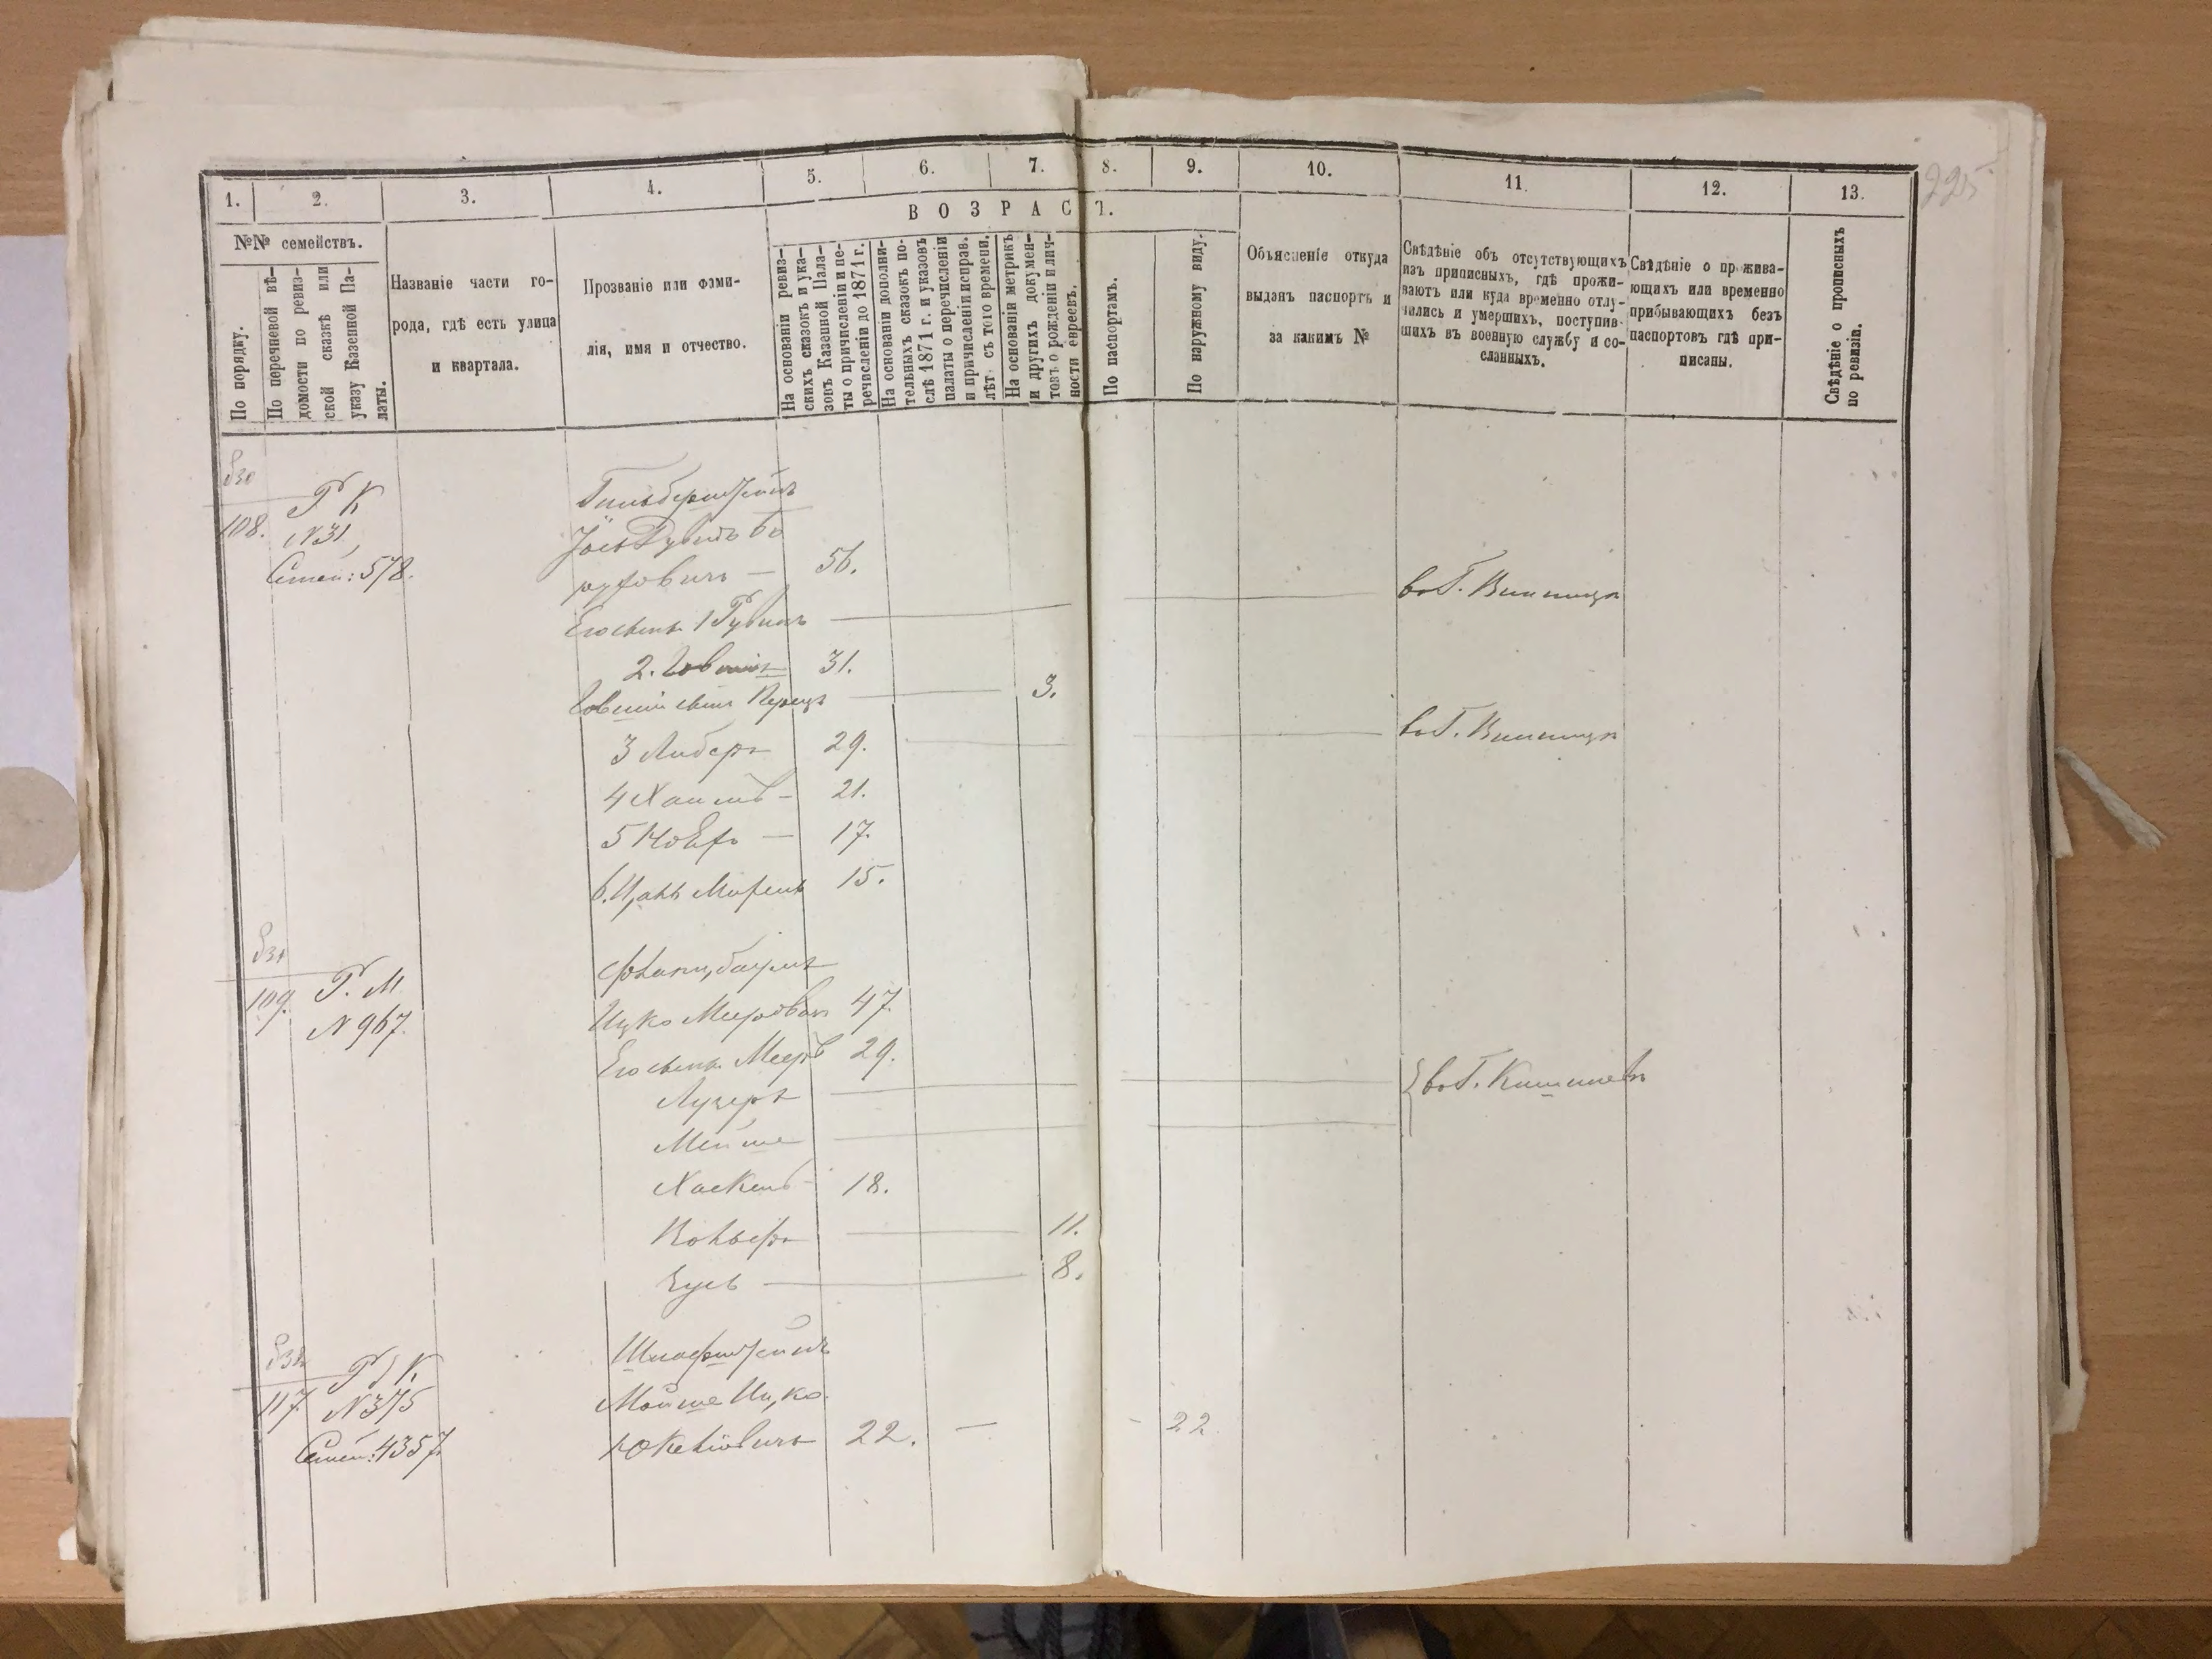 225
1. 2. 3. 4. 5. 6. 7. 8. 9. 10. 11. 12. 13.
ВОЗРАСТ.
№№ семействъ.
По порядку.
По перечневой вѣ-
домости по ревиз-
ской сказкѣ или
указу Казенной Па-
латы.
Названіе части го-
рода, гдѣ есть улица
и квартала.
Прозваніе или фами-
лія, имя и отчество.
На основаніи ревиз-
скихъ сказокъ и ука-
зовъ Казенной Пала-
ты о причисленіи и пе-
речисленіи до 1871 г.
На основаніи дополни-
тельныхъ сказокъ по-
слѣ 1871 г. и указовъ
палаты о перечисленіи
и причисленіи исправ.
лѣт съ того времени.
На основаніи метрикъ
и другихъ докумен-
товъ о рожденіи и лич-
ности евреевъ.
По паспортамъ.
По наружному виду.
Объясненіе откуда
выданъ паспортъ и
за какимъ №
Свѣдѣніе объ отсутствующихъ
изъ приписныхъ, гдѣ прожи-
ваютъ или куда временно отлу-
чились и умершихъ, поступив-
шихъ въ военную службу и со-
сланныхъ.
Свѣдѣніе о прожива-
ющихъ или временно
прибывающихъ безъ
паспортовъ гдѣ при-
писаны.
Свѣдѣніе о прописныхъ
по ревизіи.
530
108. Р К
N 31,
Семей: 578.
Гильберштейнъ
Іось Рувинъ Бо
руховичъ — 56.
Его сынъ 1 Рувинъ — въ Г. Винницѣ
2. Говшія 31.
Говшіи сынъ Перецъ — 3.
3 Либеръ 29. — въ Г. Винницѣ
4 Хаимъ — 21.
5 — 17.
6. 15.
531
109. Р. М
N 967.
Ицко Мееровичъ 47.
Его сынъ Мееръ 29.
Лузеръ — въ Г. Кишиневѣ
Мейше —
Хаскель — 18.
Вольфъ — 11.
Зусь — 8.
532
117 Р К.
N 375
Семей: 4357.
Мойше Ицко-
22. — 22